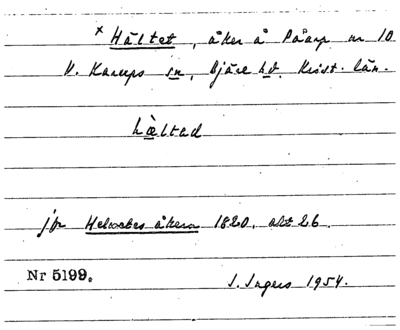 × Hältet, åker å Påarp nr 10
V. Karups sn, Bjäre hd. Krist. län.
hæ̀ltad
jfr Helvetes åkern 1820, akt 26.
Nr 5199. I. Ingers 1954.